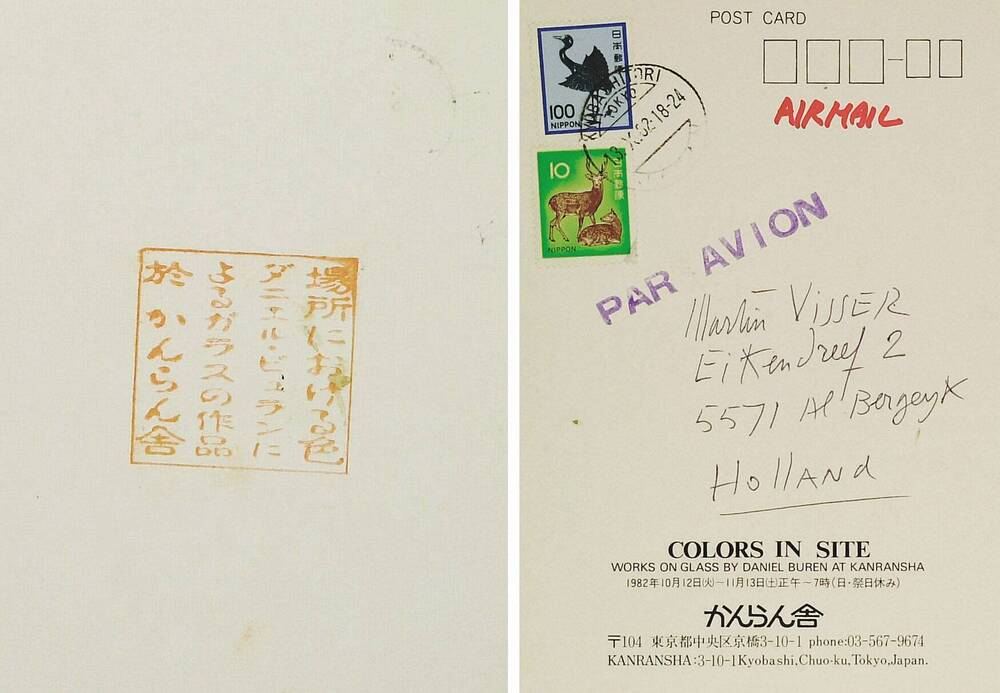 場所における色
ダニエル・ビュランに
よるガラスの作品
於 かんらん舎
POST CARD
日本郵便
100
NIPPON
TOKYO
18-24
AIRMAIL
10
日本郵便
NIPPON
PAR AVION
Martin Visser
Eikendreef 2
5571 Al Bergeyk
Holland
COLORS IN SITE
WORKS ON GLASS BY DANIEL BUREN AT KANRANSHA
1982年10月12日㈫〜11月13日㈯正午〜7時(日・祭日休み)
かんらん舎
〒104 東京都中央区京橋3-10-1 phone:03-567-9674
KANRANSHA:3-10-1Kyobashi,Chuo-ku,Tokyo,Japan.